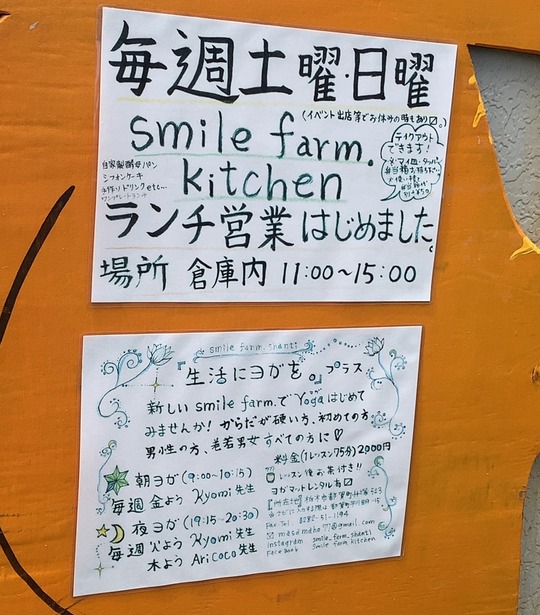 毎週土曜・日曜
(イベント出店等でお休みの時もあり〼。)
smile farm.
kitchen
テイクアウト
できます!
自家製酵母パン
シフォンケーキ
手作りドリンク etc...
ワンプレートランチ
ランチ営業はじめました。
場所 倉庫内 11:00~15:00
smile farm. shanti
『生活にヨガを。』プラス
新しい smile farm.で Yogaはじめて
みませんか! からだが硬い方、初めての方
男性の方、老若男女 すべての方に♡
朝ヨガ (9:00~10:15)
毎週 金よう Kyomi 先生
夜ヨガ (19:15~20:30)
毎週 火よう Kyomi 先生
木よう Aricoco 先生
料金(1レッスン75分) 2,000円
レッスン後 お茶付き!!
ヨガマットレンタル有〼
Fax. Tel 0282-51-1194
@gmail.com
instagram smile_farm.shanti
Facebook smile farm kitchen